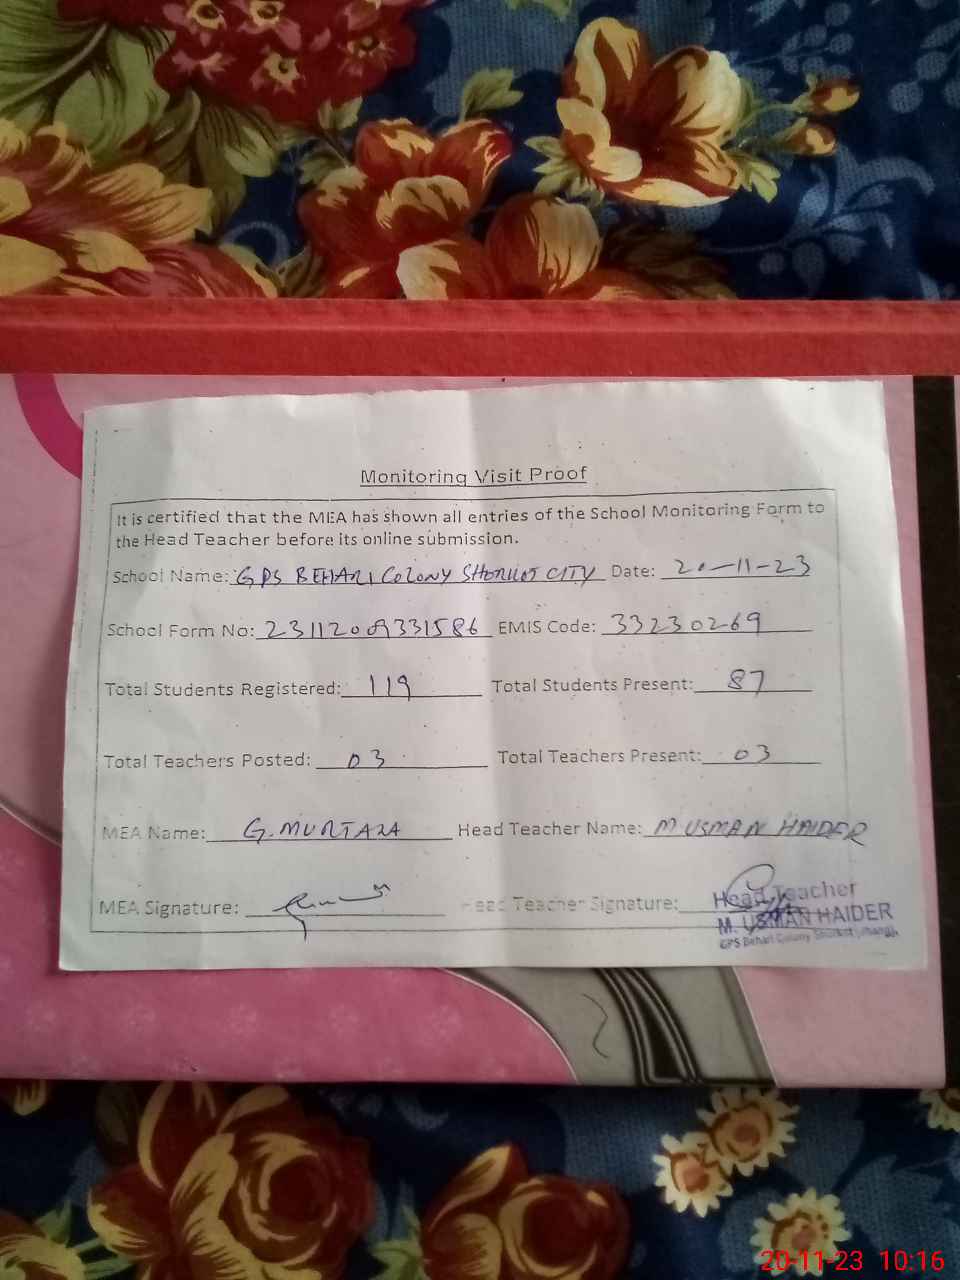 Monitoring Visit Proof
It is certified that the MEA has shown all entries of the School Monitoring Form to
the Head Teacher before its online submission.
School Name: GPS BEHARI COLONY SHORKOT CITY Date: 20-11-23
School Form No: 23112009331586 EMIS Code: 33230269
Total Students Registered: 119 Total Students Present: 87
Total Teachers Posted: 03 Total Teachers Present: 03
MEA Name: G. MURTAZA Head Teacher Name: M. USMAN HAIDER
MEA Signature: Head Teacher Signature:
Head Teacher
M. USMAN HAIDER
GPS Behari Colony Shorkot (Jhang)
20-11-23 10:16